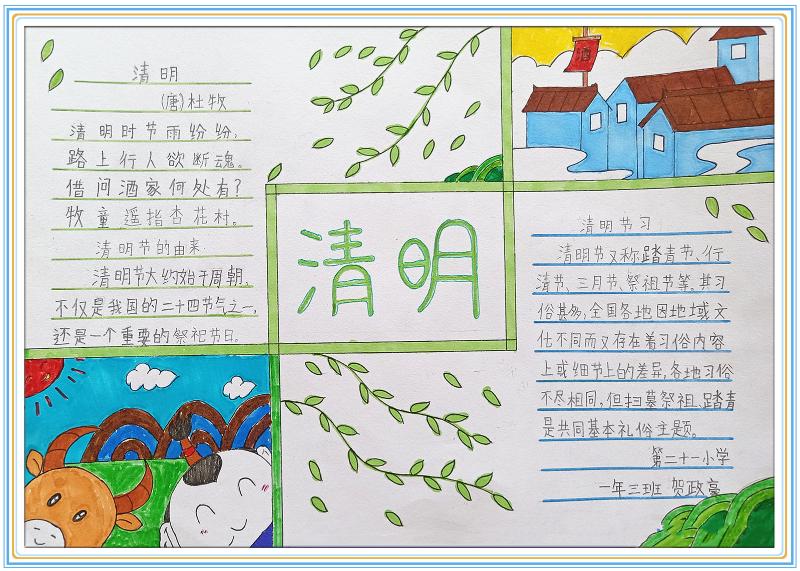 清明
(唐)杜牧
清明时节雨纷纷,
路上行人欲断魂。
借问酒家何处有?
牧童遥指杏花村。
清明节的由来
清明节大约始于周朝,
不仅是我国的二十四节气之一,
还是一个重要的祭祀节日。
清明
酒
清明节习
清明节又称踏青节、行
清节、三月节、祭祖节等。其习
俗甚多,全国各地因地域文
化不同而又存在着习俗内容
上或细节上的差异,各地习俗
不尽相同,但扫墓祭祖、踏青
是共同基本礼俗主题。
第二十一小学
一年三班 贺政毫